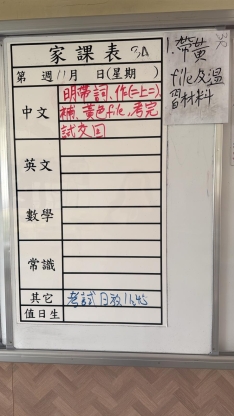 家課表 3A
第 週 11月 日(星期 )
中文
明帶詞、作(二上二)
補、黃色file,考完
試交回
英文
數學
常識
其它
考試日放11:45
值日生
1.帶黃
file及溫
習材料